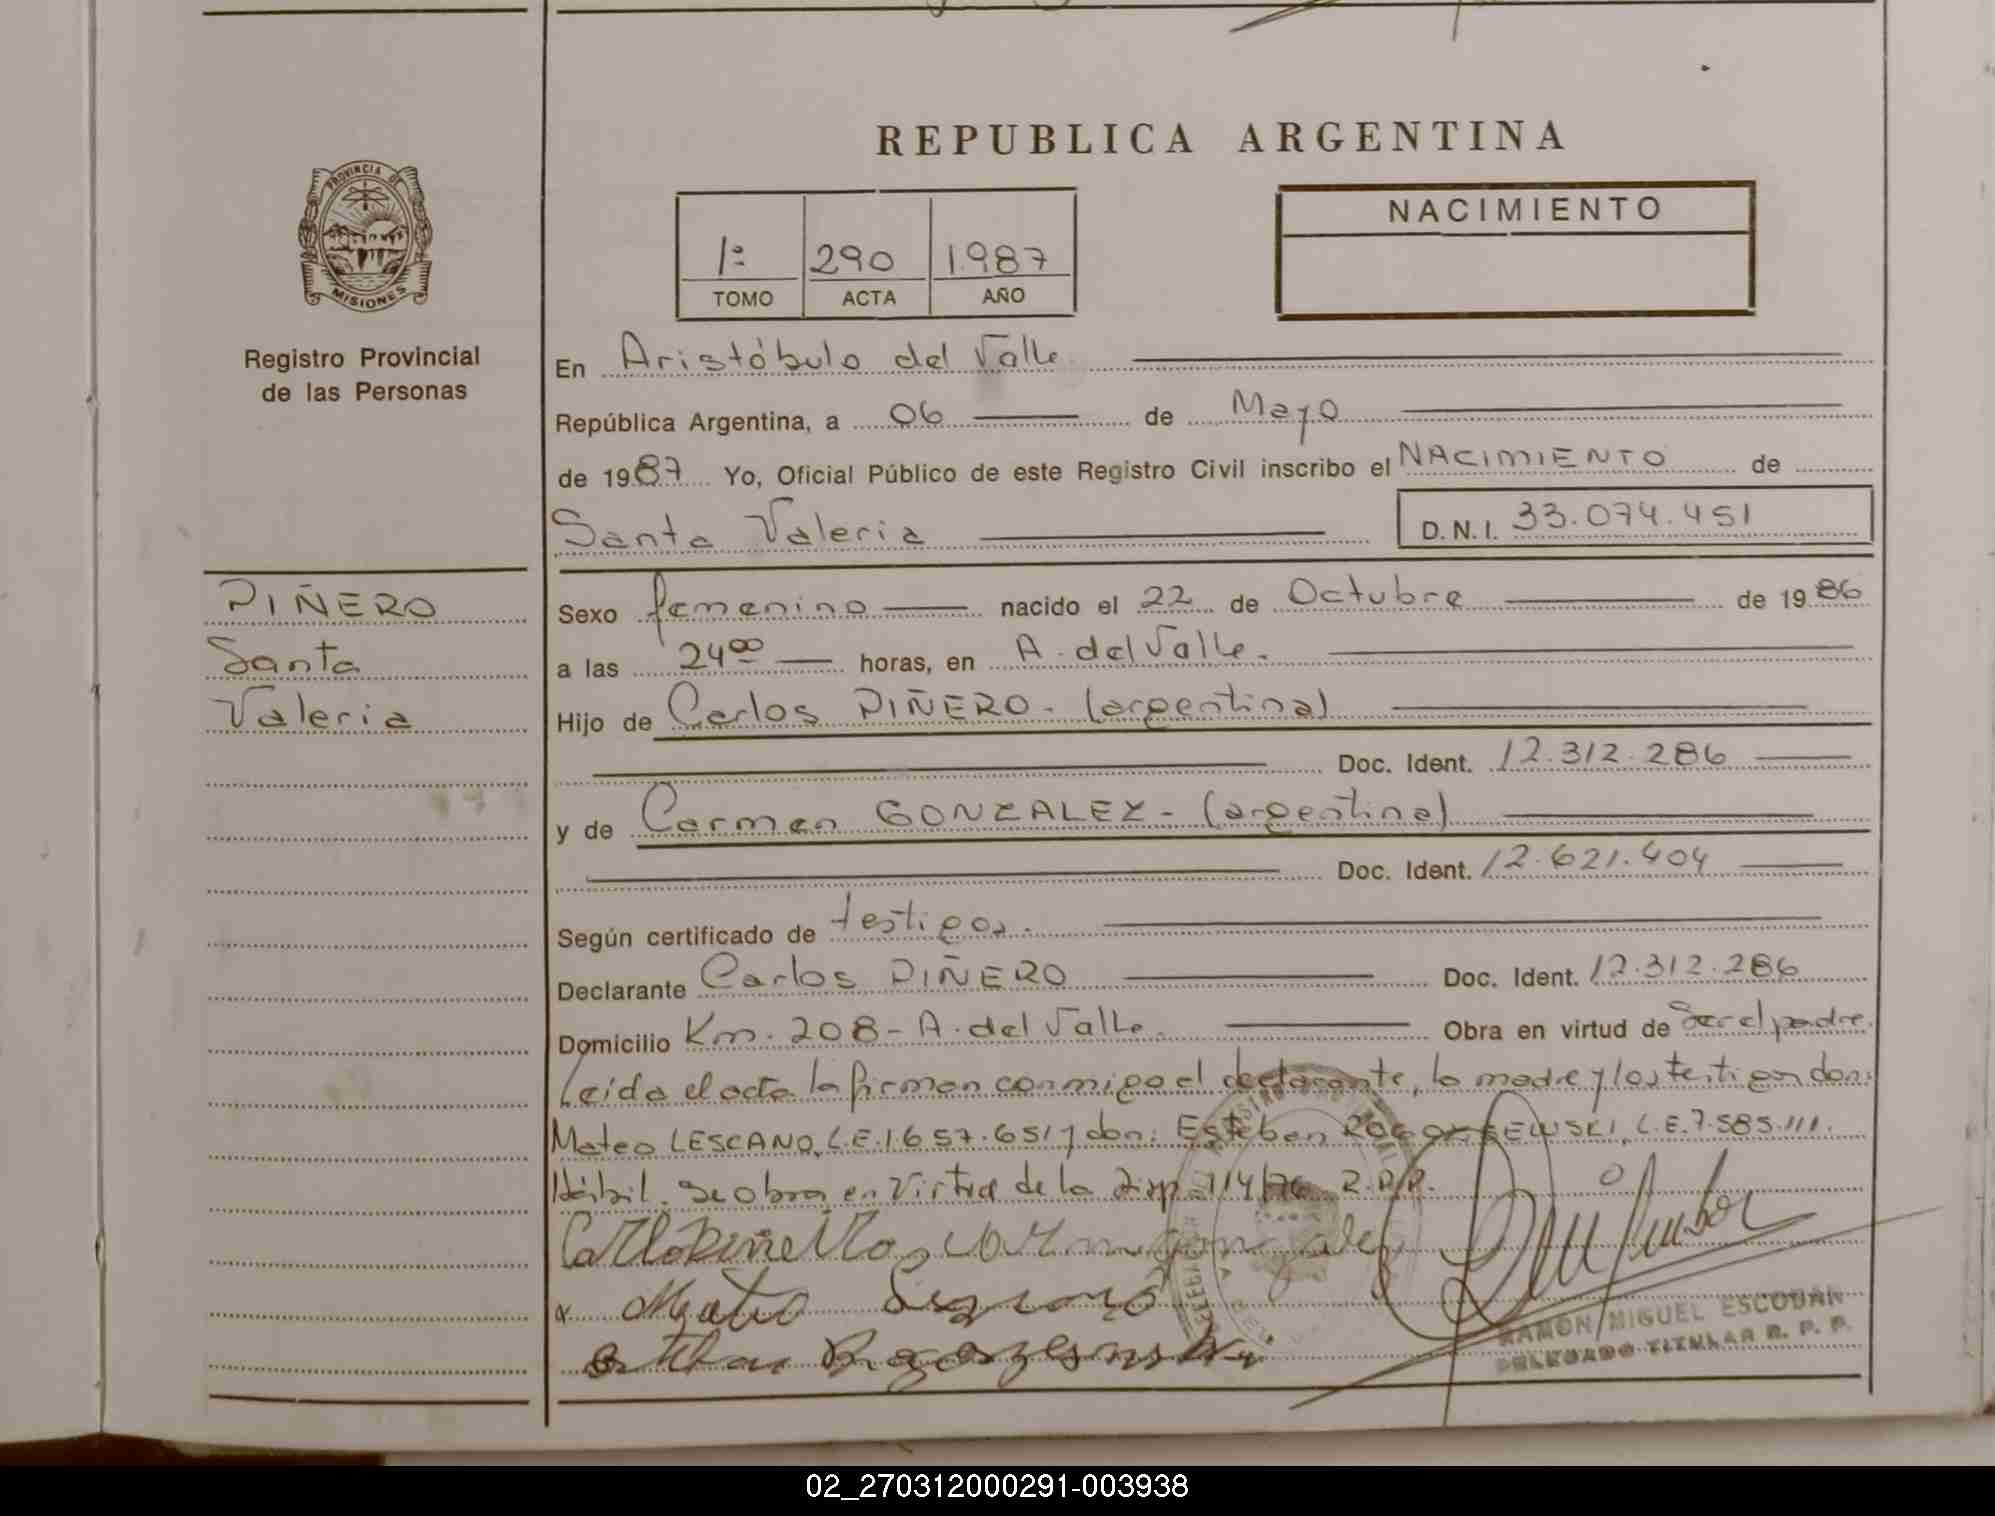 REPUBLICA ARGENTINA
PROVINCIA DE
MISIONES
1º 290 1987
TOMO ACTA AÑO
NACIMIENTO
Registro Provincial
de las Personas
En Aristóbulo del Valle
República Argentina, a 06 de Mayo
de 1987 Yo, Oficial Público de este Registro Civil inscribo el NACIMIENTO de
Santa Valeria D.N.I. 33.074.451
PIÑERO
Santa
Valeria
Sexo femenino nacido el 22 de Octubre de 1986
a las 24⁰⁰ horas, en A. del Valle.
Hijo de Carlos PIÑERO - (argentina)
Doc. Ident. 12.312.286
y de Carmen GONZALEZ - (argentina)
Doc. Ident. 12.621.404
Según certificado de testigos.
Declarante Carlos PIÑERO Doc. Ident. 12.312.286
Domicilio Km. 208 - A. del Valle. Obra en virtud de Ser el padre.
Leida el acta la firman conmigo el declarante, la madre y los testigos don:
Mateo LESCANO, L.E. 1.657.651 y don: Esteban L.E. 7.585.111.
Hábil. Se obra en Virtud de la Disp. 114/76 R.P.P.
Mateo
RAMON MIGUEL ESCOBAR
DELEGADO TITULAR R. P. P.
02_270312000291-003938